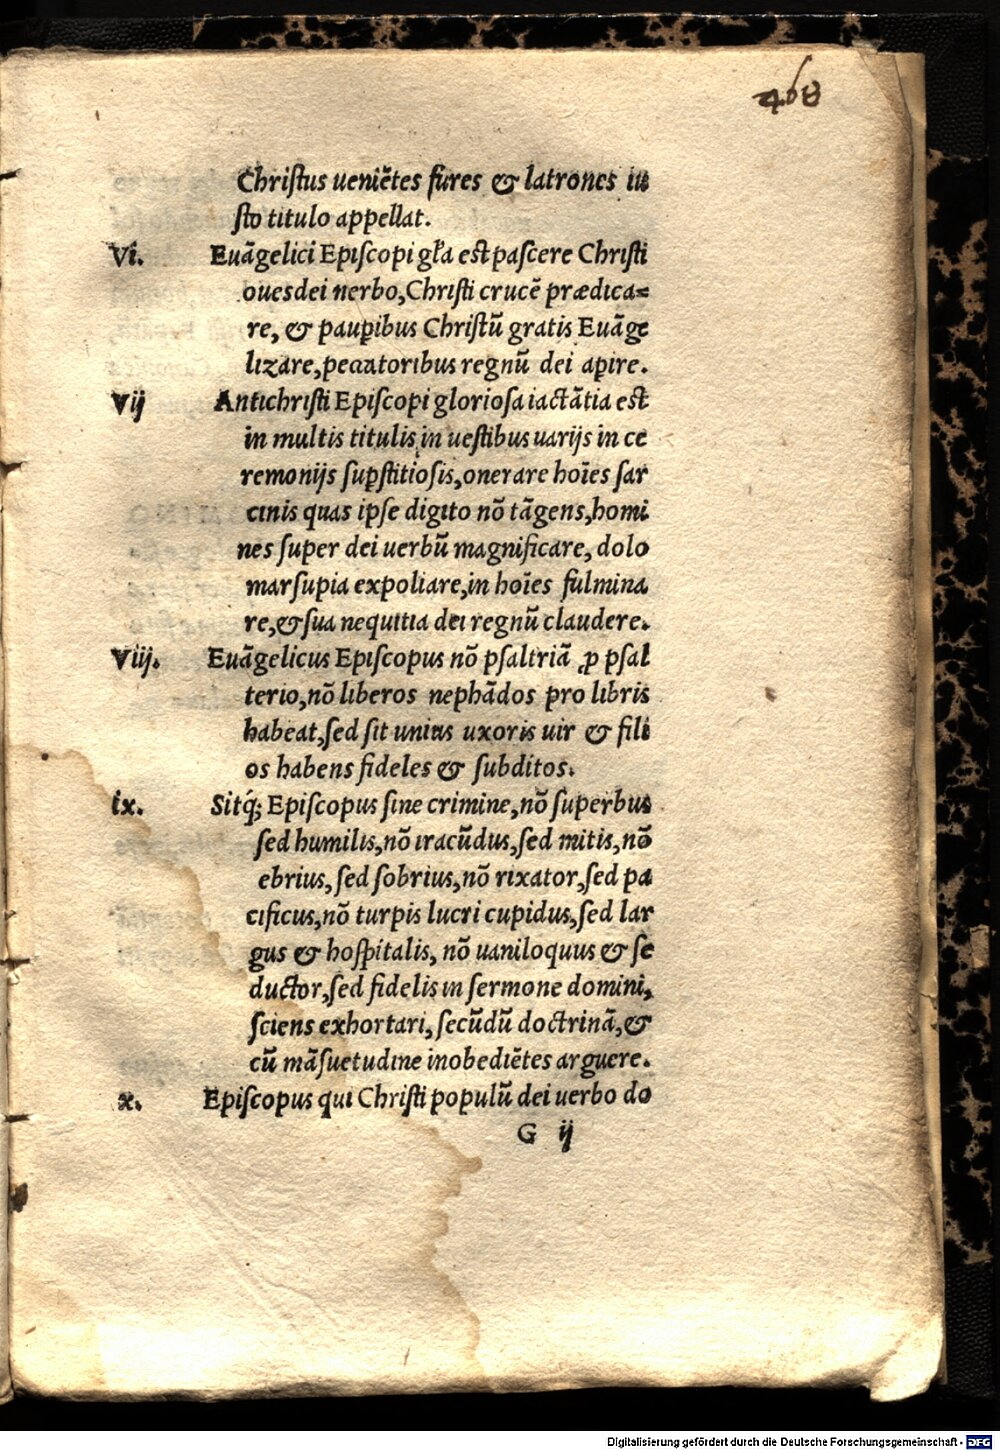 468
Chriſtus ueniẽtes fures & latrones iu
ſto titulo appellat.
Vi. Euãgelici Epiſcopi gl̃a eſt paſcere Chriſti
oues dei nerbo, Chriſti crucẽ prædica=
re, & paup̱ibus Chriſtũ gratis Euãge
lizare, peccatoribus regnũ dei ap̱ire.
Vij Antichriſti Epiſcopi glorioſa iactãtia eſt
in multis titulis in ueſtibus uarijs in ce
remonijs ſup̱ſtitioſis, onerare hoĩes ſar
cinis quas ipſe digito nõ tãgens, homi
nes ſuper dei uerbũ magnificare, dolo
marſupia expoliare, in hoĩes fulmina
re, & ſua nequitia dei regnũ claudere.
Viij. Euãgelicus Epiſcopus nõ pſaltriã ꝓ pſal
terio, nõ liberos nephãdos pro libris
habeat, ſed ſit unius uxoris uir & fili
os habens fideles & ſubditos.
ix. Sitq́; Epiſcopus ſine crimine, nõ ſuperbus
ſed humilis, nõ iracũdus, ſed mitis, nõ
ebrius, ſed ſobrius, nõ rixator, ſed pa
cificus, nõ turpis lucri cupidus, ſed lar
gus & hoſpitalis, nõ uaniloquus & ſe
ductor, ſed fidelis in ſermone domini,
ſciens exhortari, ſecũdũ doctrinã, &
cũ mãſuetudine inobediẽtes arguere.
x. Epiſcopus qui Chriſti populũ dei uerbo do
G ij
Digitalisierung gefördert durch die Deutsche Forschungsgemeinschaft - DFG